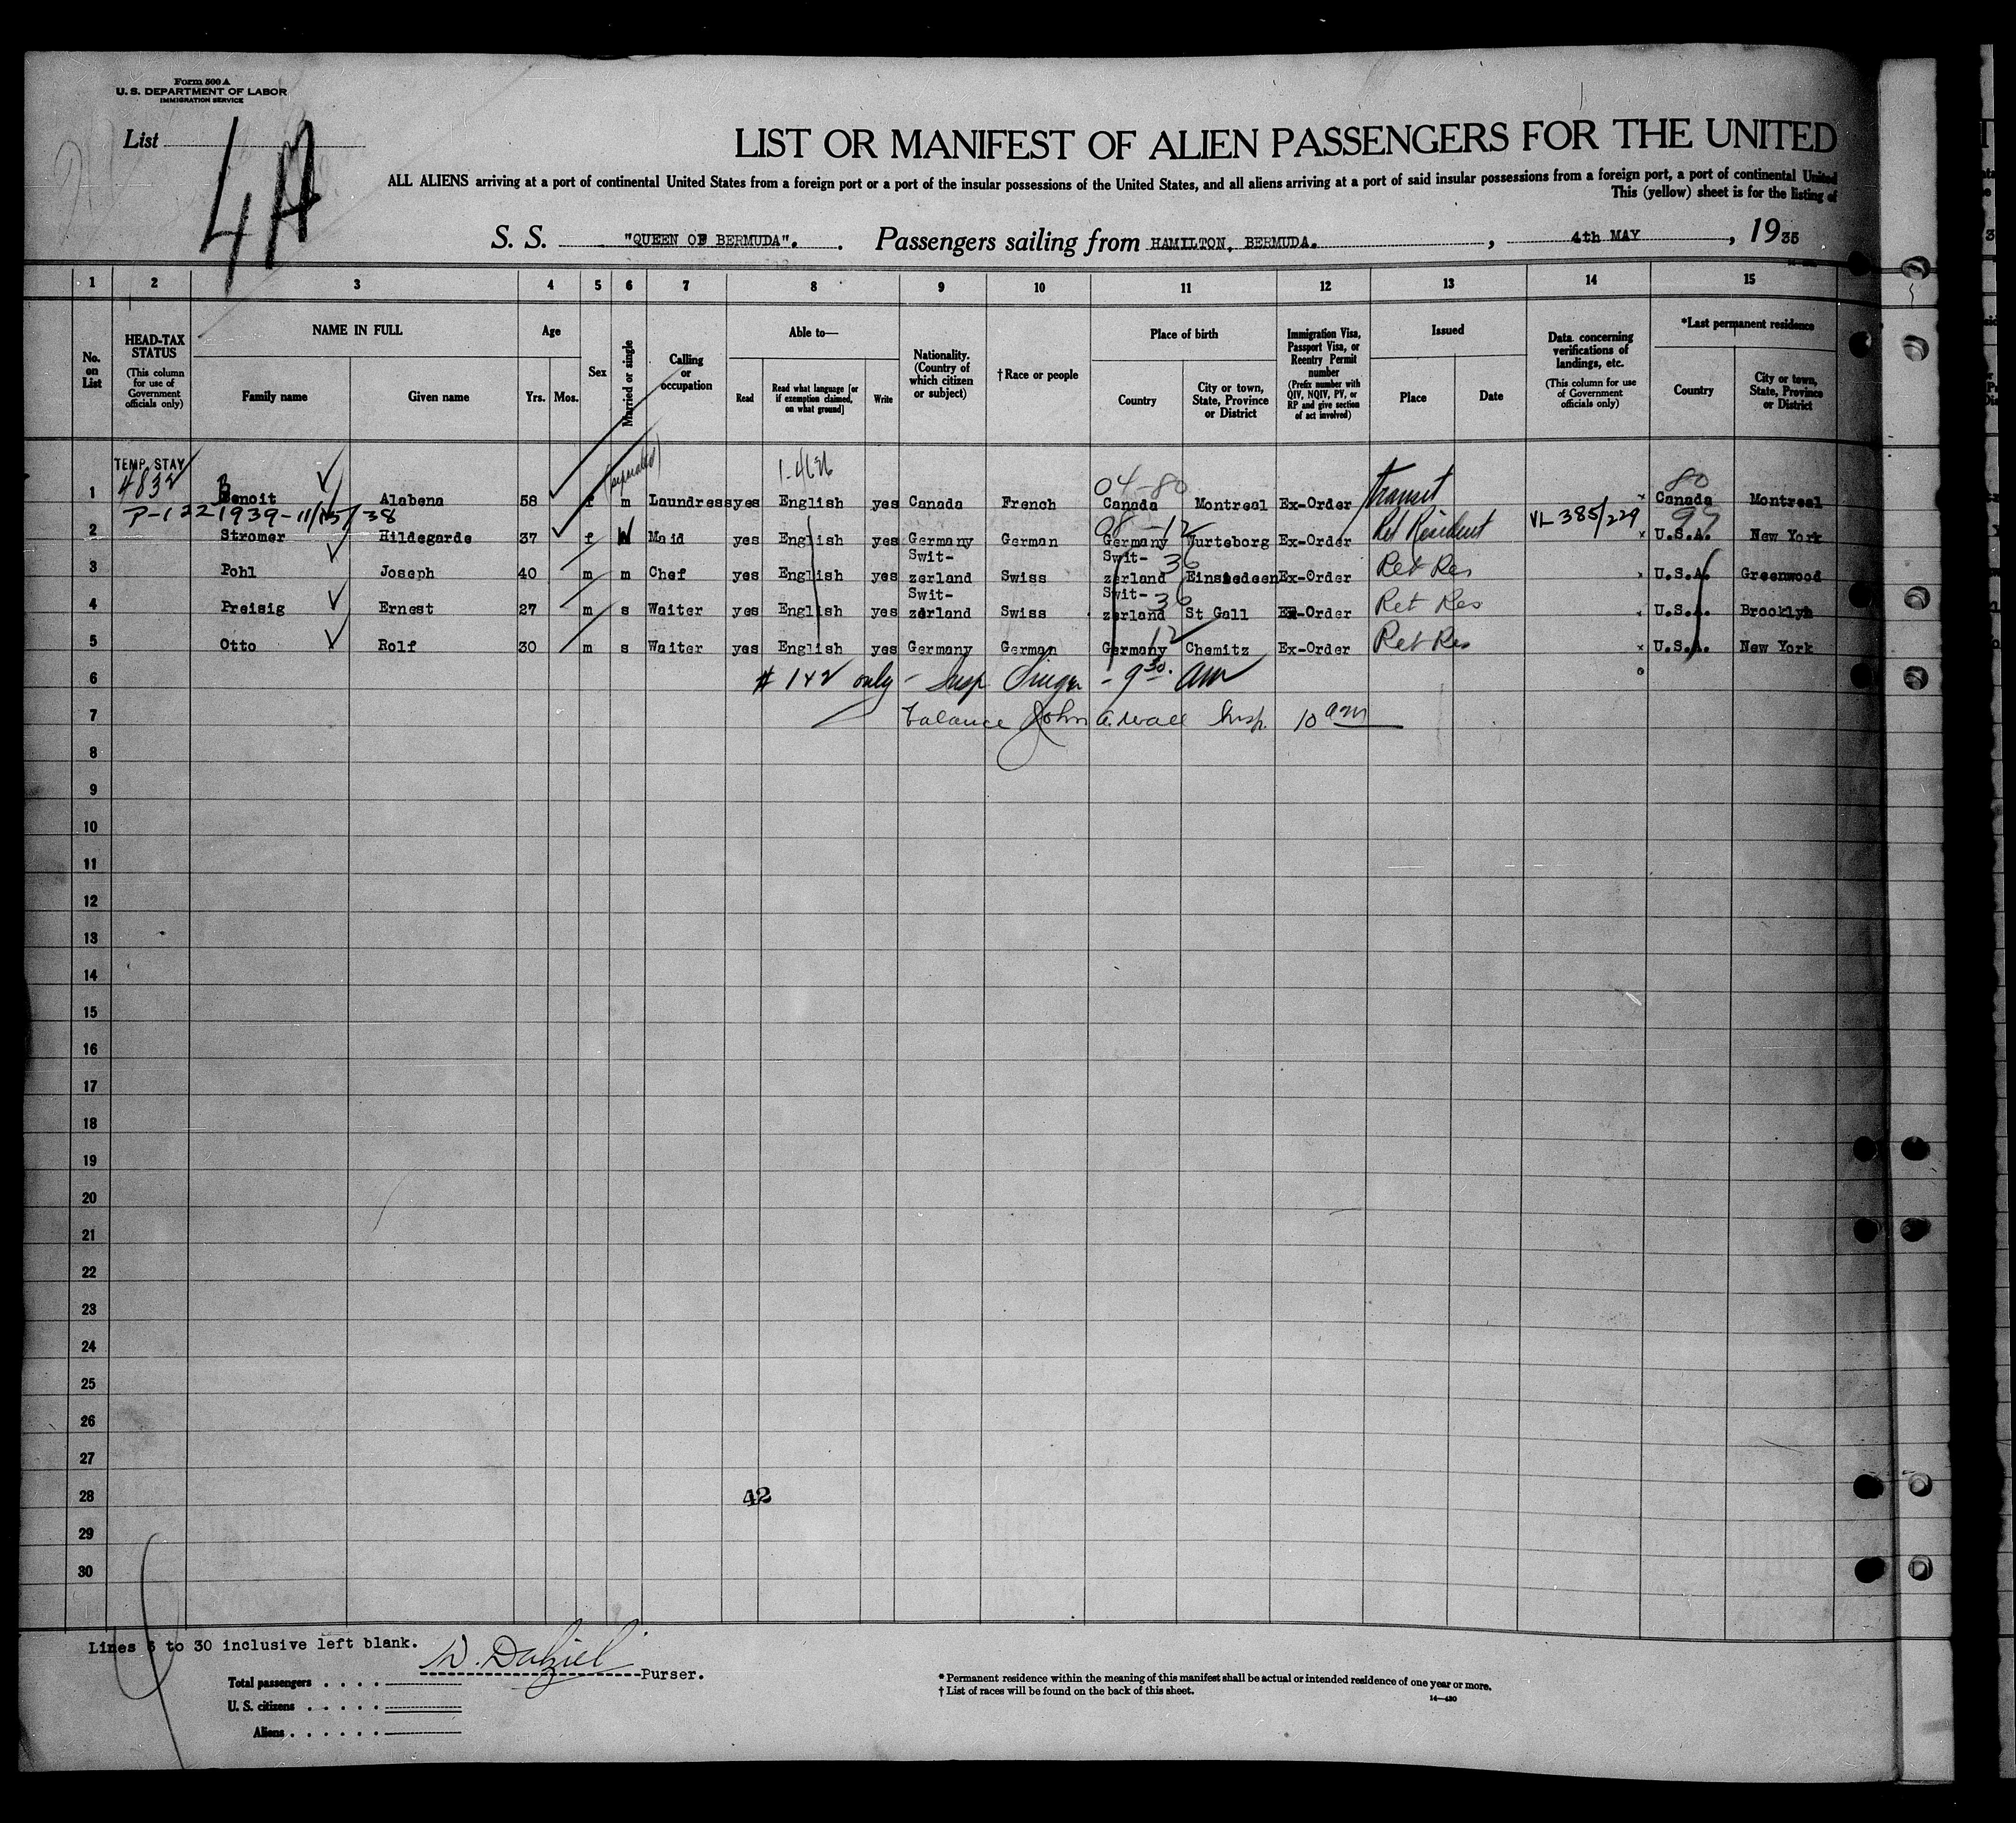 Form 500 A
U. S. DEPARTMENT OF LABOR
IMMIGRATION SERVICE
List
4A
LIST OR MANIFEST OF ALIEN PASSENGERS FOR THE UNITED
ALL ALIENS arriving at a port of continental United States from a foreign port or a port of the insular possessions of the United States, and all aliens arriving at a port of said insular possessions from a foreign port, a port of continental United
This (yellow) sheet is for the listing of
S. S. "QUEEN OF BERMUDA". Passengers sailing from HAMILTON, BERMUDA. , 4th MAY , 1935
1 2 3 4 5 6 7 8 9 10 11 12 13 14 15
No. on List
HEAD-TAX STATUS (This column for use of Government officials only)
NAME IN FULL
Family name
Given name
Age
Yrs. Mos.
Sex
Married or single
Calling or occupation
Able to—
Read
Read what language [or if exemption claimed, on what ground]
Write
Nationality. (Country of which citizen or subject)
†Race or people
Place of birth
Country
City or town, State, Province or District
Immigration Visa, Passport Visa, or Reentry Permit number (Prefix number with QIV, NQIV, PV, or RP and give section of act involved)
Issued
Place
Date
Data concerning verifications of landings, etc. (This column for use of Government officials only)
*Last permanent residence
Country
City or town, State, Province or District
TEMP. STAY
4832
(separated)
04-80
80
1 Benoit Alabena 58 f m Laundress yes English yes Canada French Canada Montreal Ex-Order Transit x Canada Montreal
P-1221939-11/15/38
08-12
VL 385/229
99
2 Stromer Hildegarde 37 f W Maid yes English yes Germany German Germany Wurteborg Ex-Order Ret Resident x U.S.A. New York
3 Pohl Joseph 40 m m Chef yes English yes Swit-zerland Swiss Swit-zerland 36 Einsiedeen Ex-Order Ret Res x U.S.A. Greenwood
4 Preisig Ernest 27 m s Waiter yes English yes Swit-zerland Swiss Swit-zerland 36 St Gall Ex-Order Ret Res x U.S.A. Brooklyn
5 Otto Rolf 30 m s Waiter yes English yes Germany German Germany 12 Chemitz Ex-Order Ret Res x U.S.A. New York
6 # 1+2 only - Insp - 9 30 am
7 balance John A. Wall Insp. 10 am
8
9
10
11
12
13
14
15
16
17
18
19
20
21
22
23
24
25
26
27
28 42
29
30
Lines 6 to 30 inclusive left blank.
W. Dalziel
Purser.
Total passengers
U. S. citizens
Aliens
* Permanent residence within the meaning of this manifest shall be actual or intended residence of one year or more.
† List of races will be found on the back of this sheet.
14—430